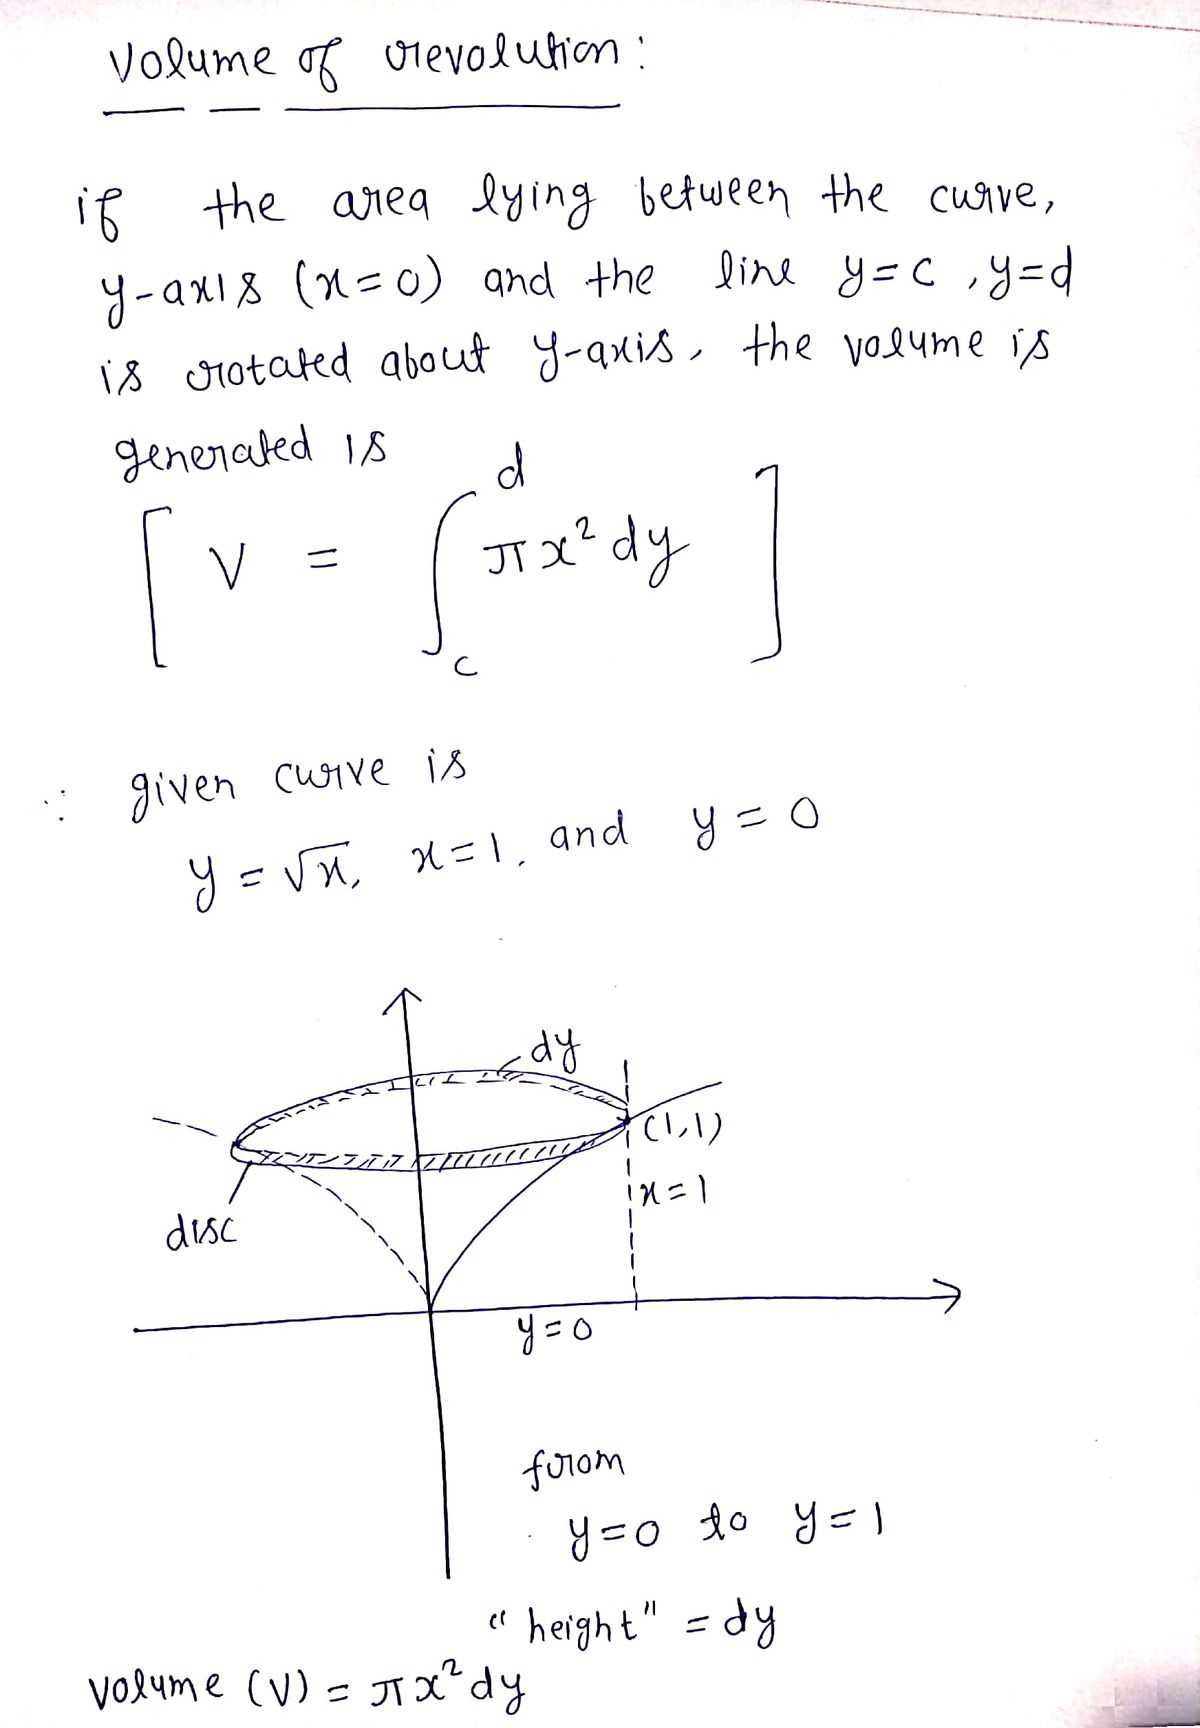 Volume of revolution:
if the area lying between the curve,
y-axis (x=0) and the line y=c, y=d
is rotated about y-axis, the volume is
generated is
[ V = ∫_c^d πx² dy ]
∵ given curve is
y = √x, x=1, and y=0
dy
(1,1)
x=1
disc
y=0
from
y=0 to y=1
"height" = dy
volume (V) = πx² dy